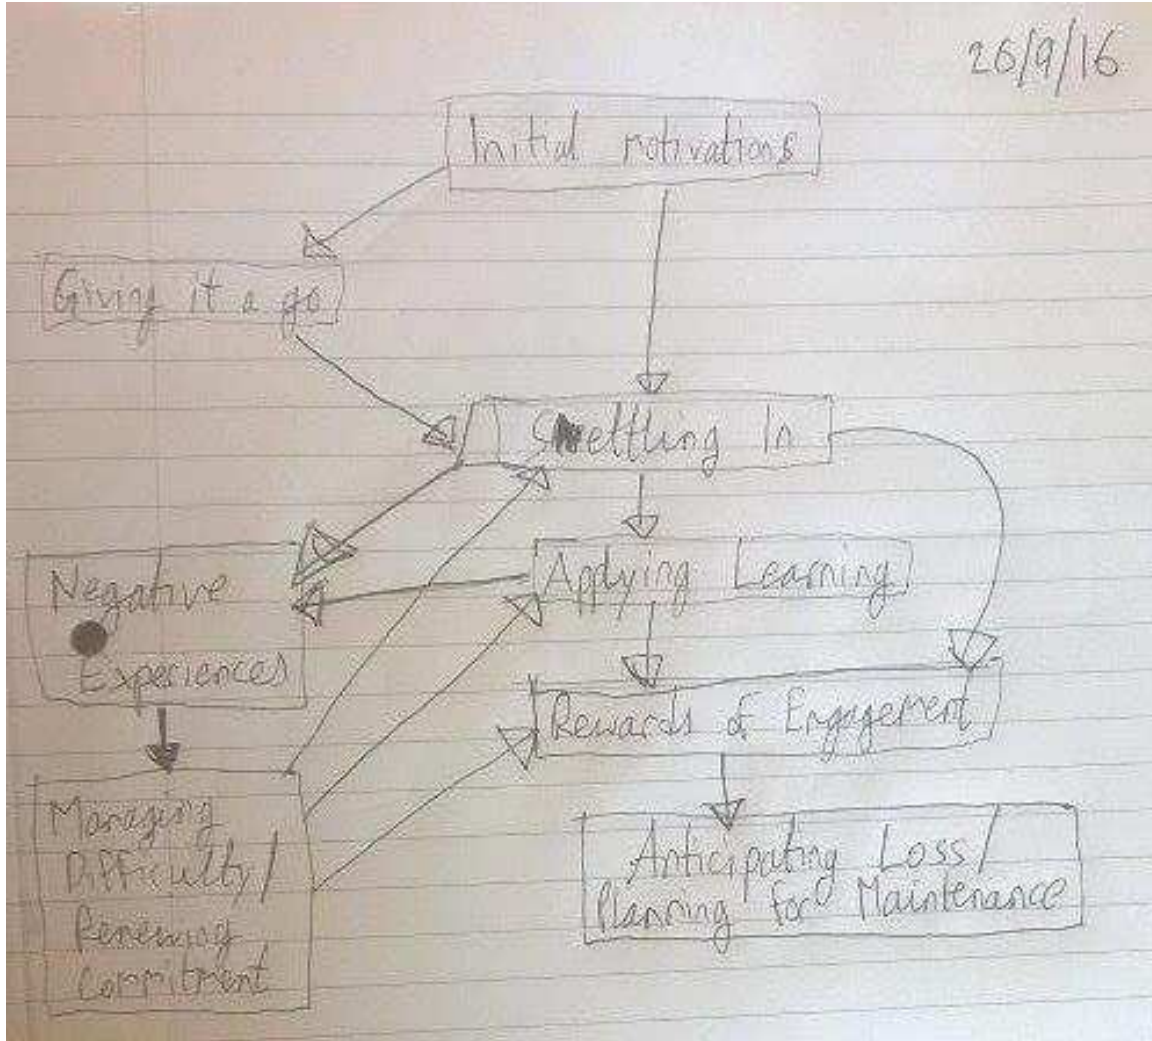 26/9/16
Initial motivations
Giving it a go
Settling In
Negative
Experiences
Applying Learning
Rewards of Engagement
Managing
Difficulty/
Renewing
Commitment
Anticipating Loss/
Planning for Maintenance